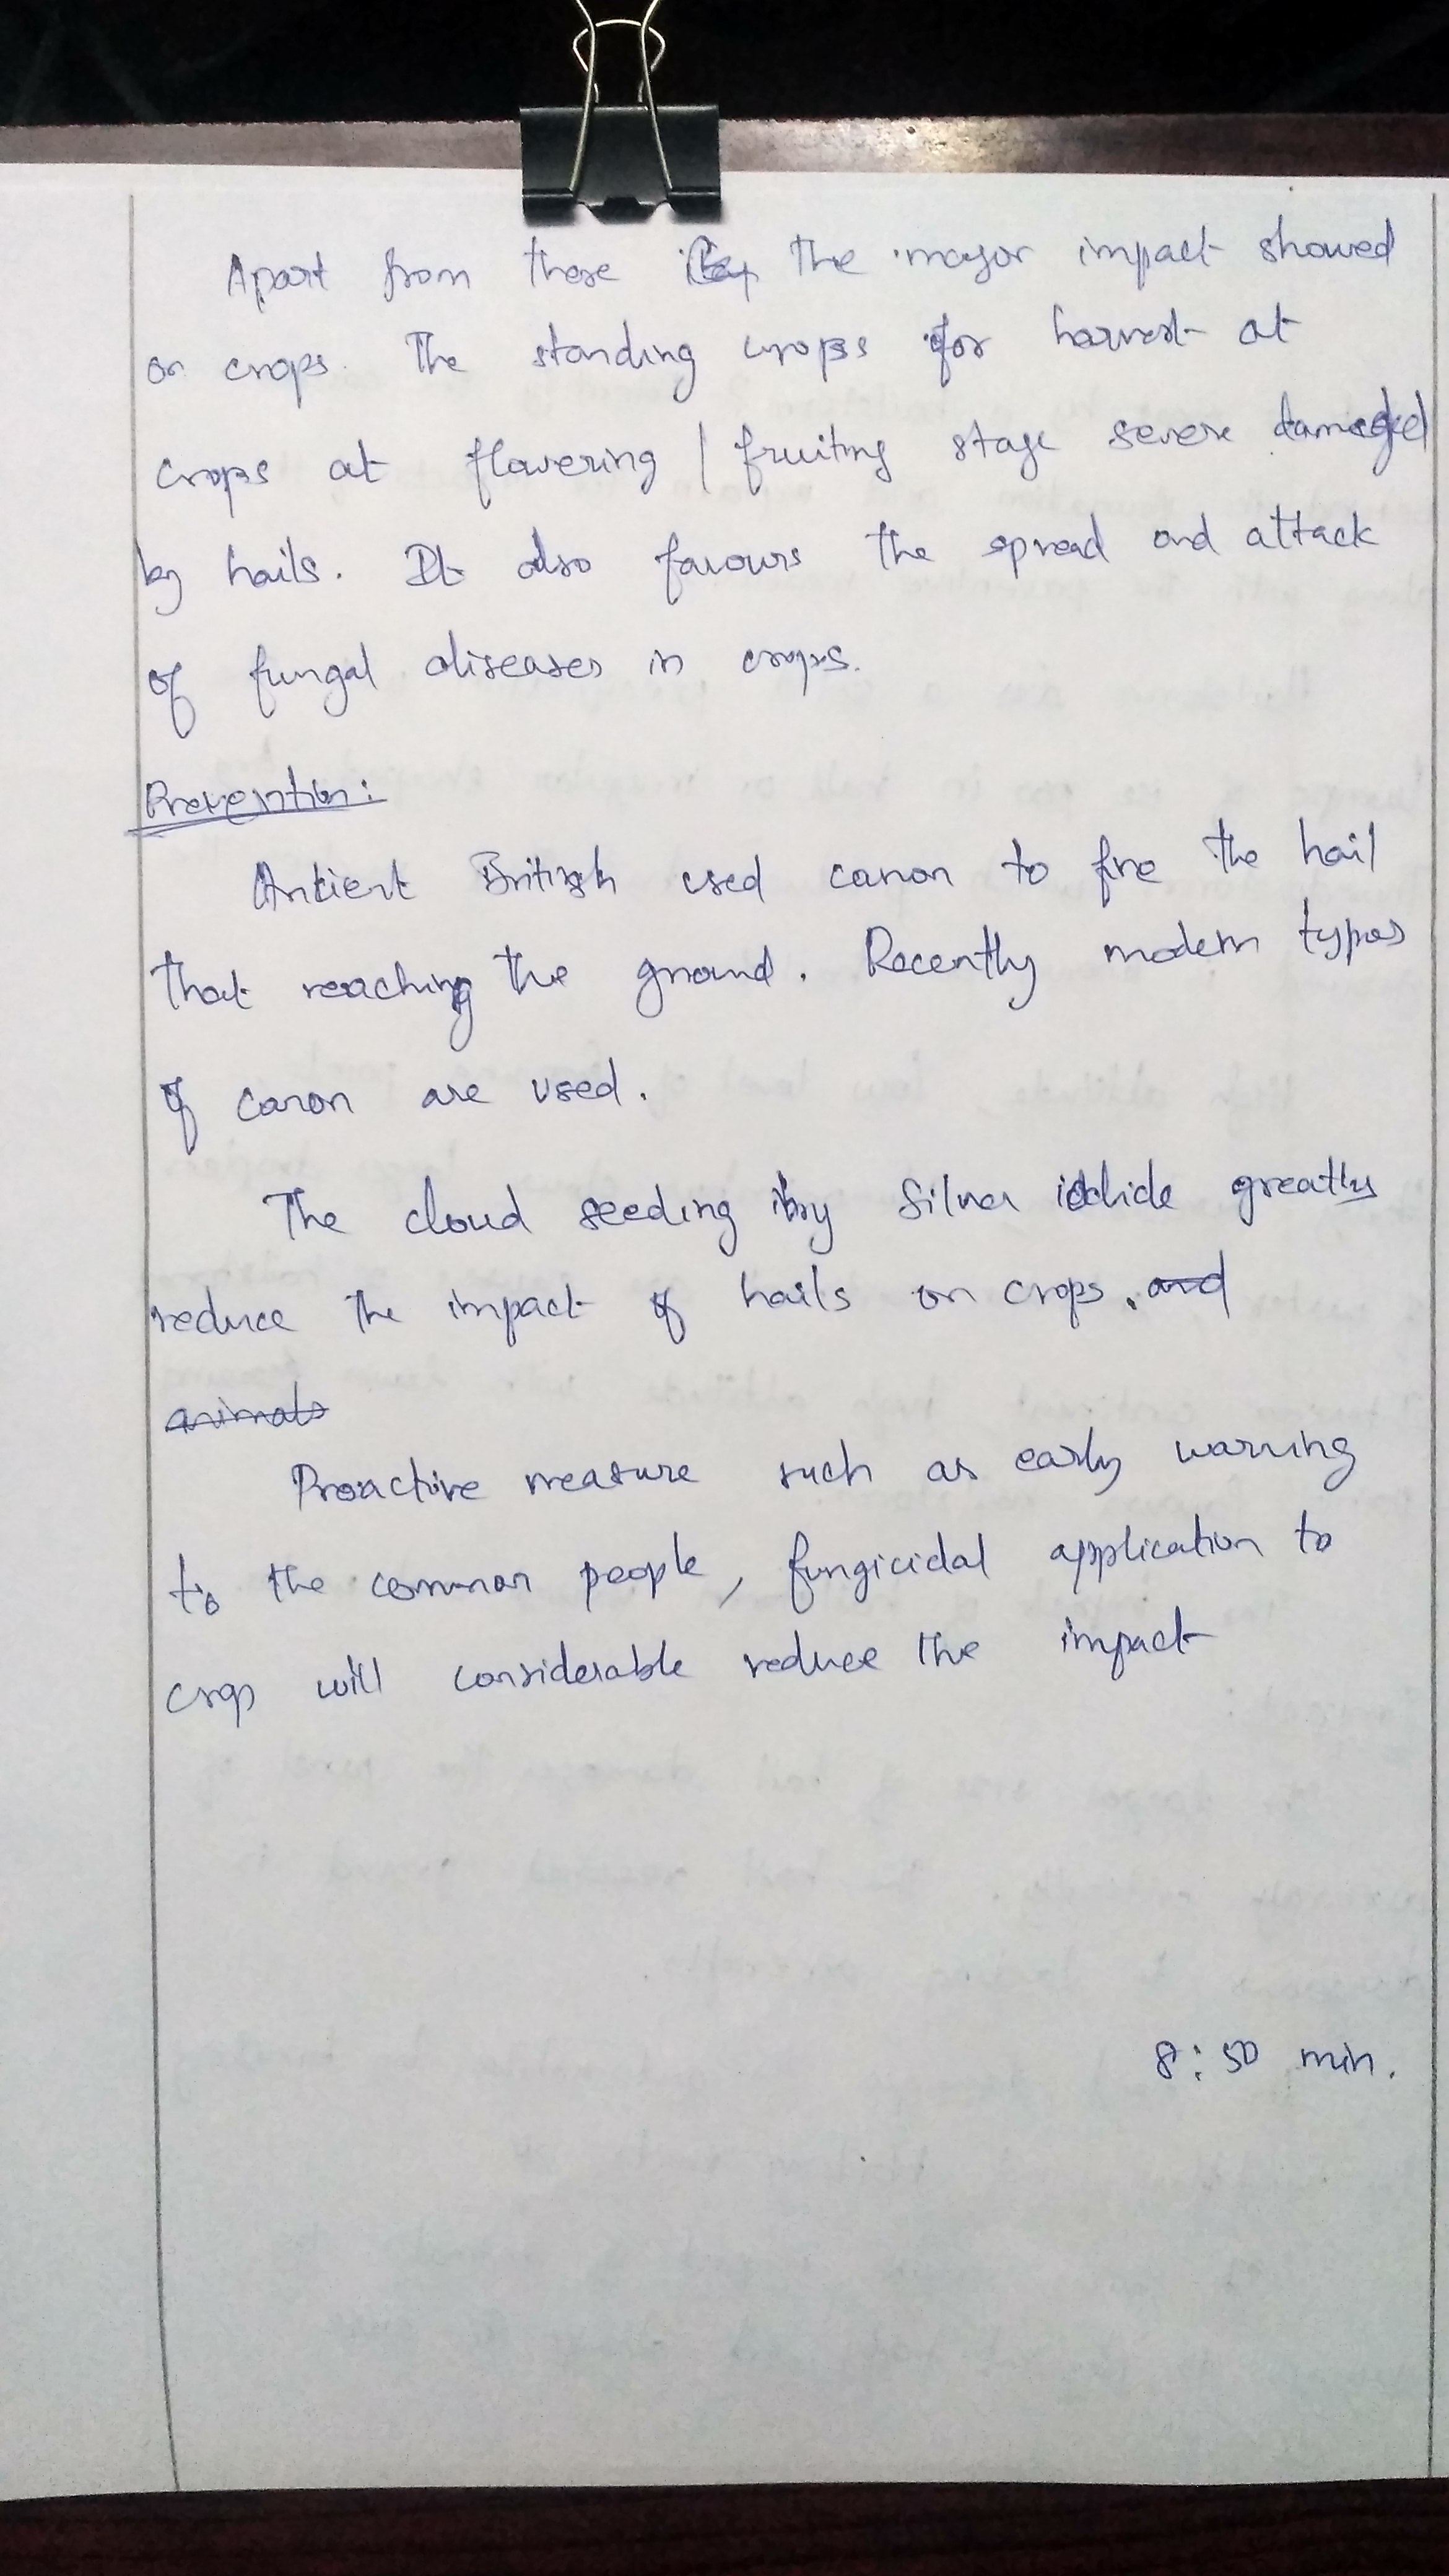 Apart from these the major impact showed
on crops. The standing crops for harvest at
crops at flowering / fruiting stage severe damaged
by hails. It also favours the spread and attack
of fungal diseases in crops.
Prevention:
Ancient British used canon to fire the hail
that reaching the ground. Recently modern types
of canon are used.
The cloud seeding by Silver iodide greatly
reduce the impact of hails on crops. and
animals
Proactive measure such as early warning
to the common people, fungicidal application to
crop will considerable reduce the impact
8:50 min.